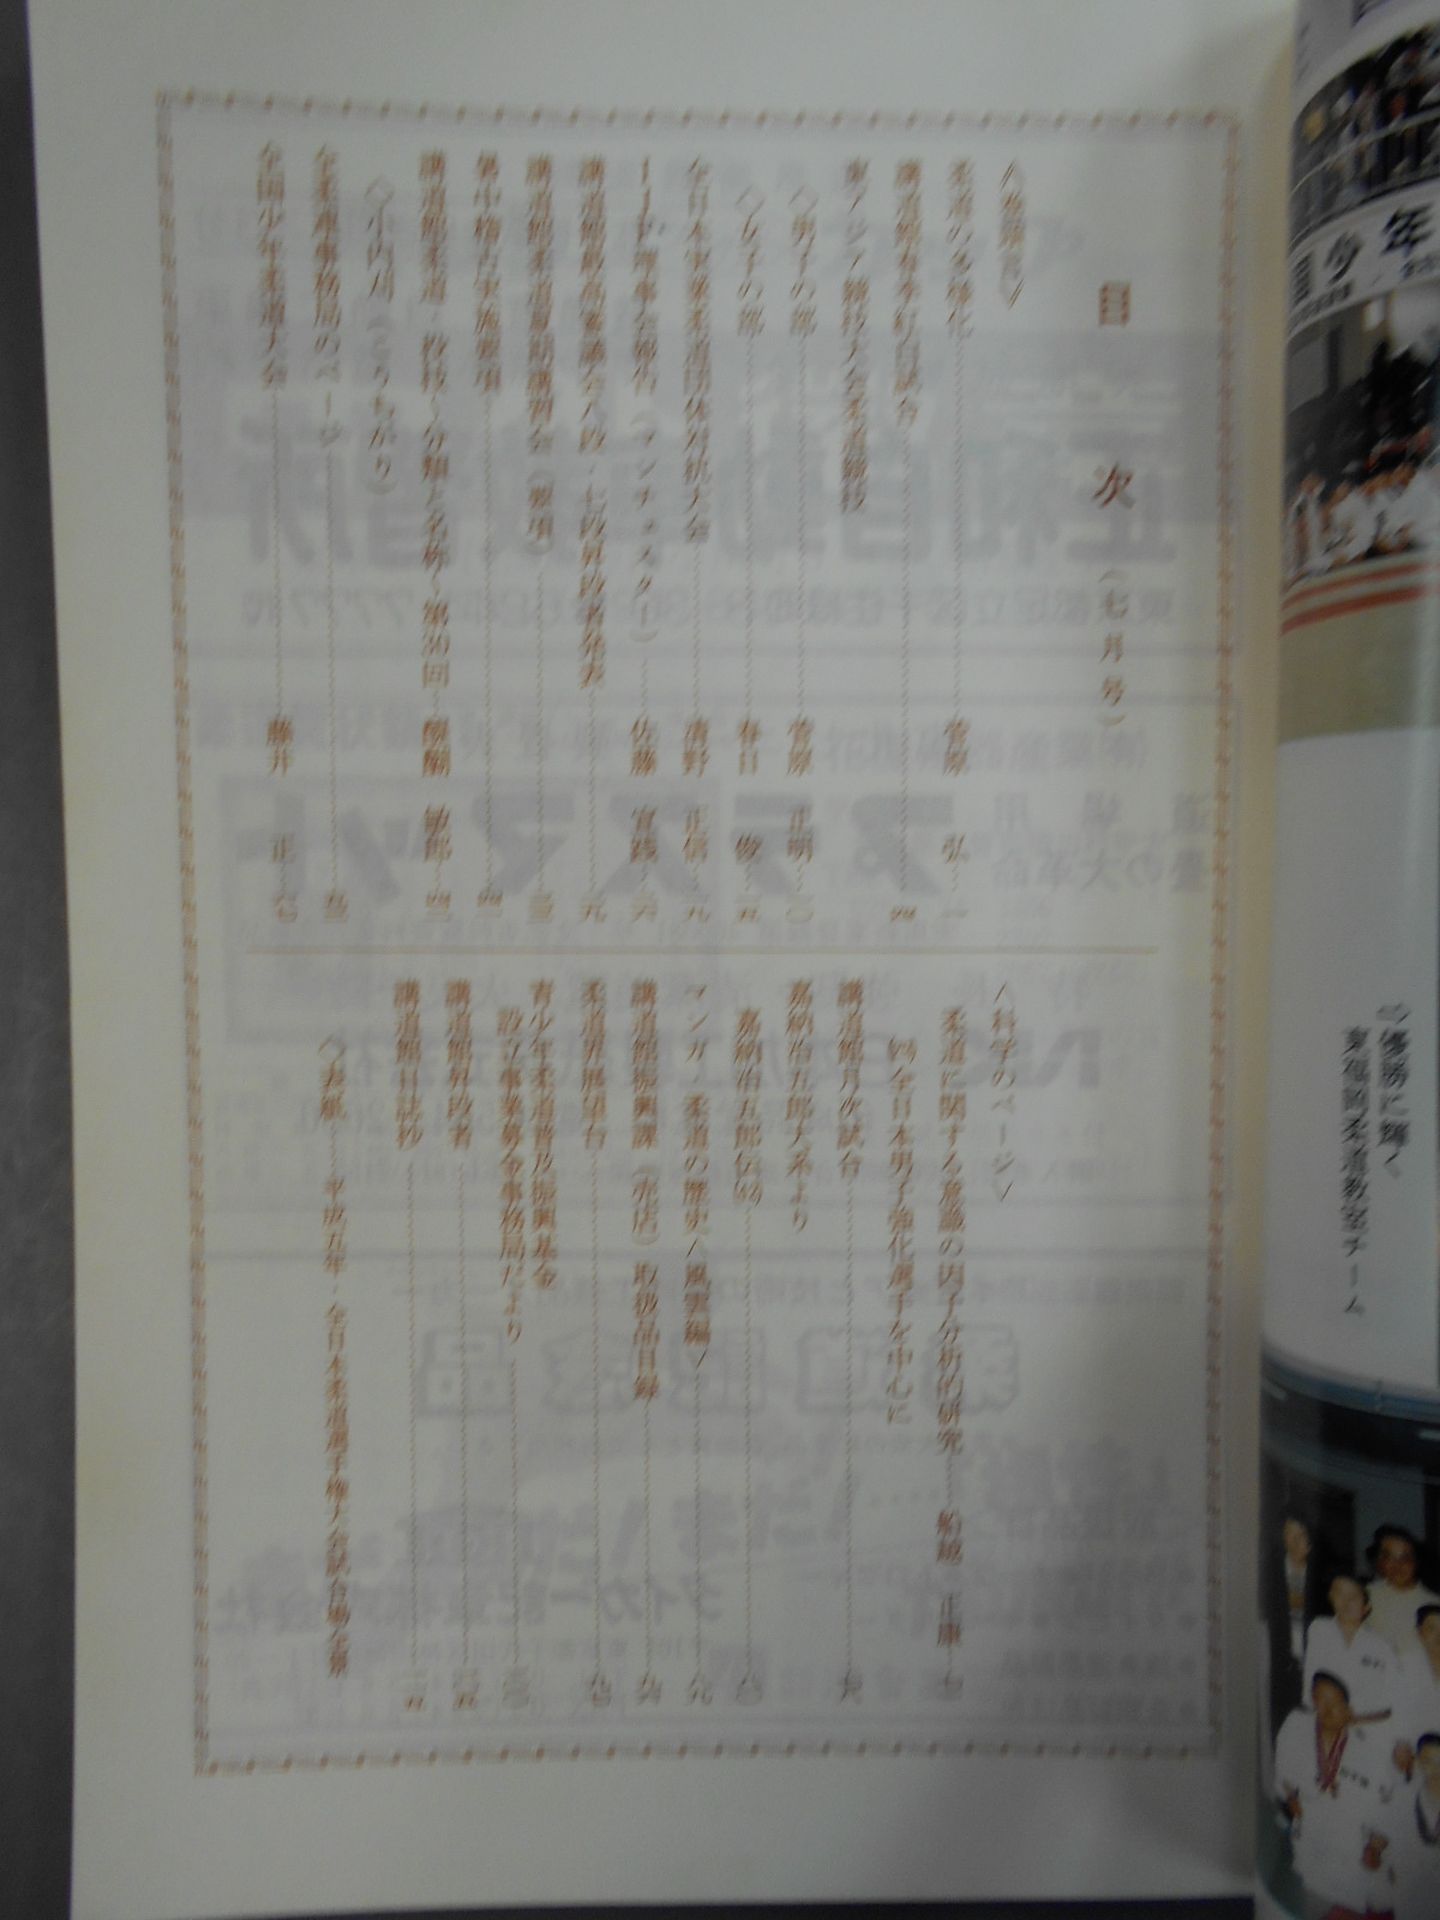 目次（七月号）
〈巻頭言〉
柔道の多様化 菅原 弘 一
講道館春季紅白試合 四
東アジア競技大会柔道競技
〈男子の部〉 菅原 正明 一〇
〈女子の部〉 春日 俊 一五
全日本実業柔道団体対抗大会 清野 正信 一九
IJF理事会報告（マンチェスター） 佐藤 宣践 二六
講道館最高審議会八段・七段昇段者発表 二九
講道館柔道夏期講習会（要項） 三三
暑中稽古実施要項 四二
講道館柔道・投技～分類と名称～第30回 醍醐 敏郎 四三
〈小内刈（こうちがり）〉
全柔連事務局のページ 五三
全国少年柔道大会 藤井 正 六七
〈科学のページ〉
柔道に関する意識の因子分析的研究 船越 正康
㈣全日本男子強化選手を中心に
講道館月次試合
嘉納治五郎大系より
嘉納治五郎伝 八〇
マンガ・柔道の歴史〈風雲編〉 八九
講道館振興課（売店）取扱品目録 九六
柔道界展望台 九七
青少年柔道普及振興基金
設立事業募金事務局だより
講道館昇段者
講道館日誌抄
◇表紙 平成五年・全日本柔道選手権大会試合場全景
少年
優勝に輝く
東福岡柔道教室チーム